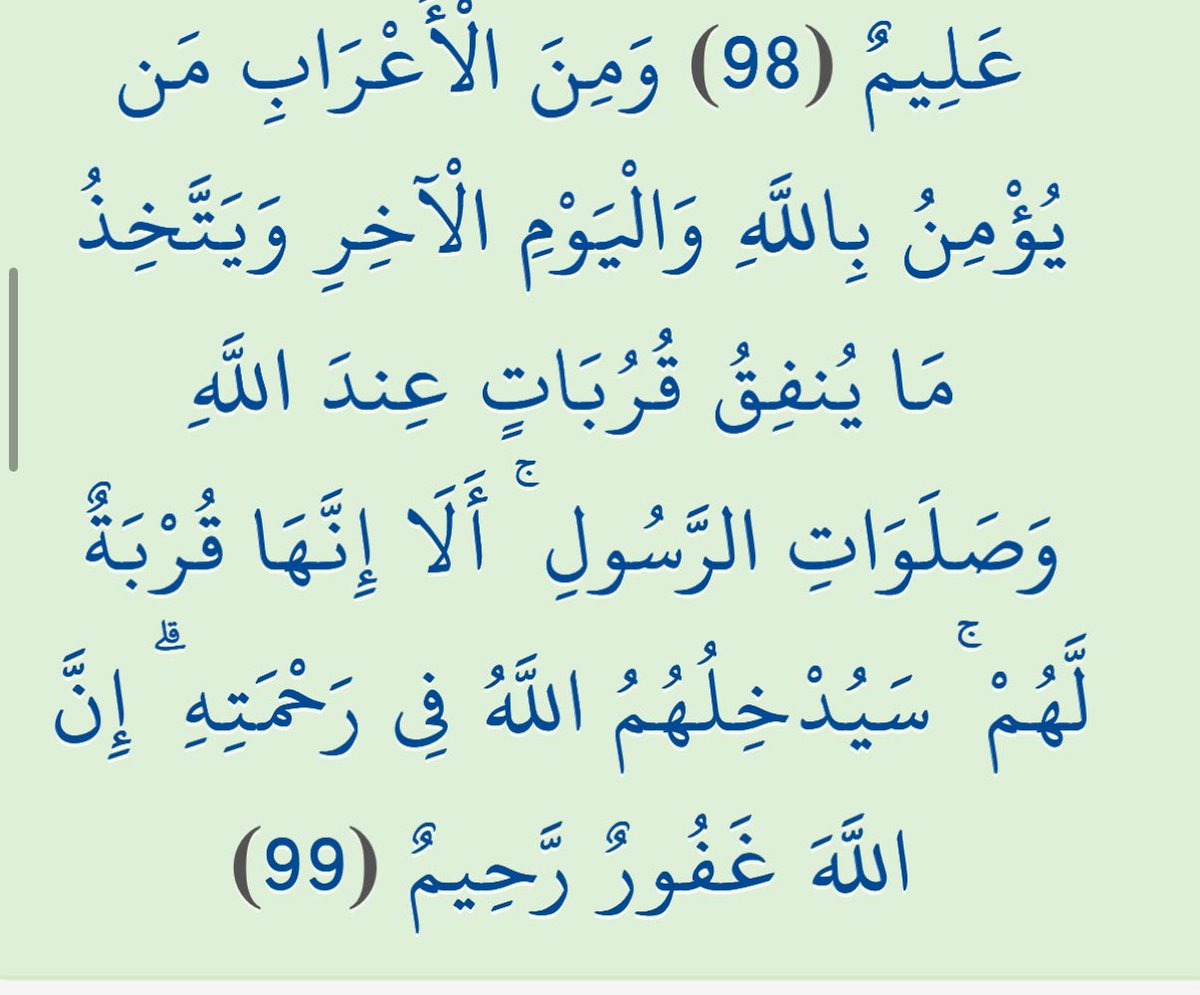 عَلِيمٌ (98) وَمِنَ الْأَعْرَابِ مَن
يُؤْمِنُ بِاللَّهِ وَالْيَوْمِ الْآخِرِ وَيَتَّخِذُ
مَا يُنفِقُ قُرُبَاتٍ عِندَ اللَّهِ
وَصَلَوَاتِ الرَّسُولِ ۚ أَلَا إِنَّهَا قُرْبَةٌ
لَّهُمْ ۚ سَيُدْخِلُهُمُ اللَّهُ فِى رَحْمَتِهِ ۗ إِنَّ
اللَّهَ غَفُورٌ رَّحِيمٌ (99)